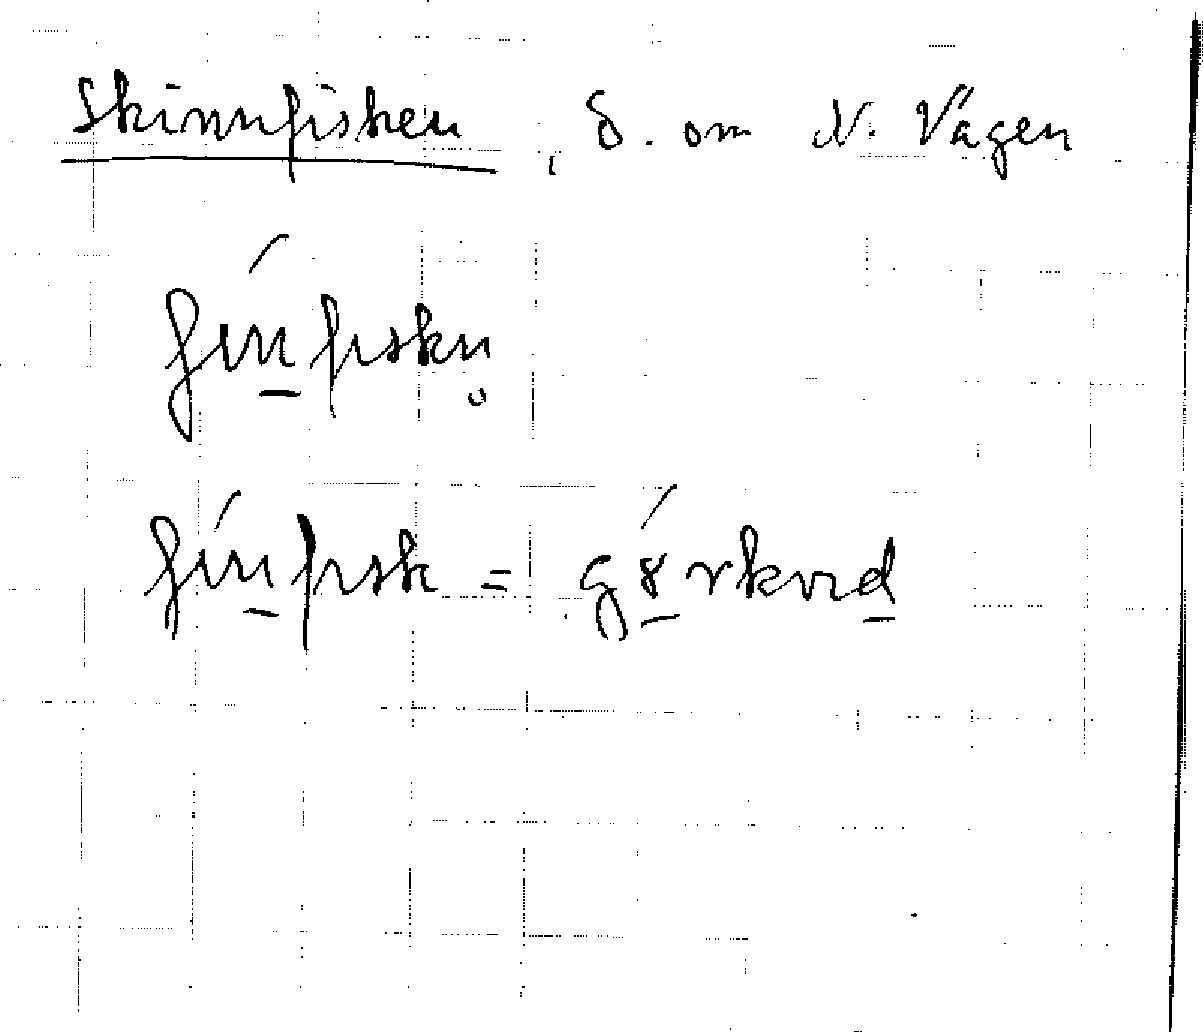 Skinnfisken, S. om N. Vågen
ʃín̲fɪskn̥
ʃín̲fɪsk = gɤ̲́rkvɪd̲